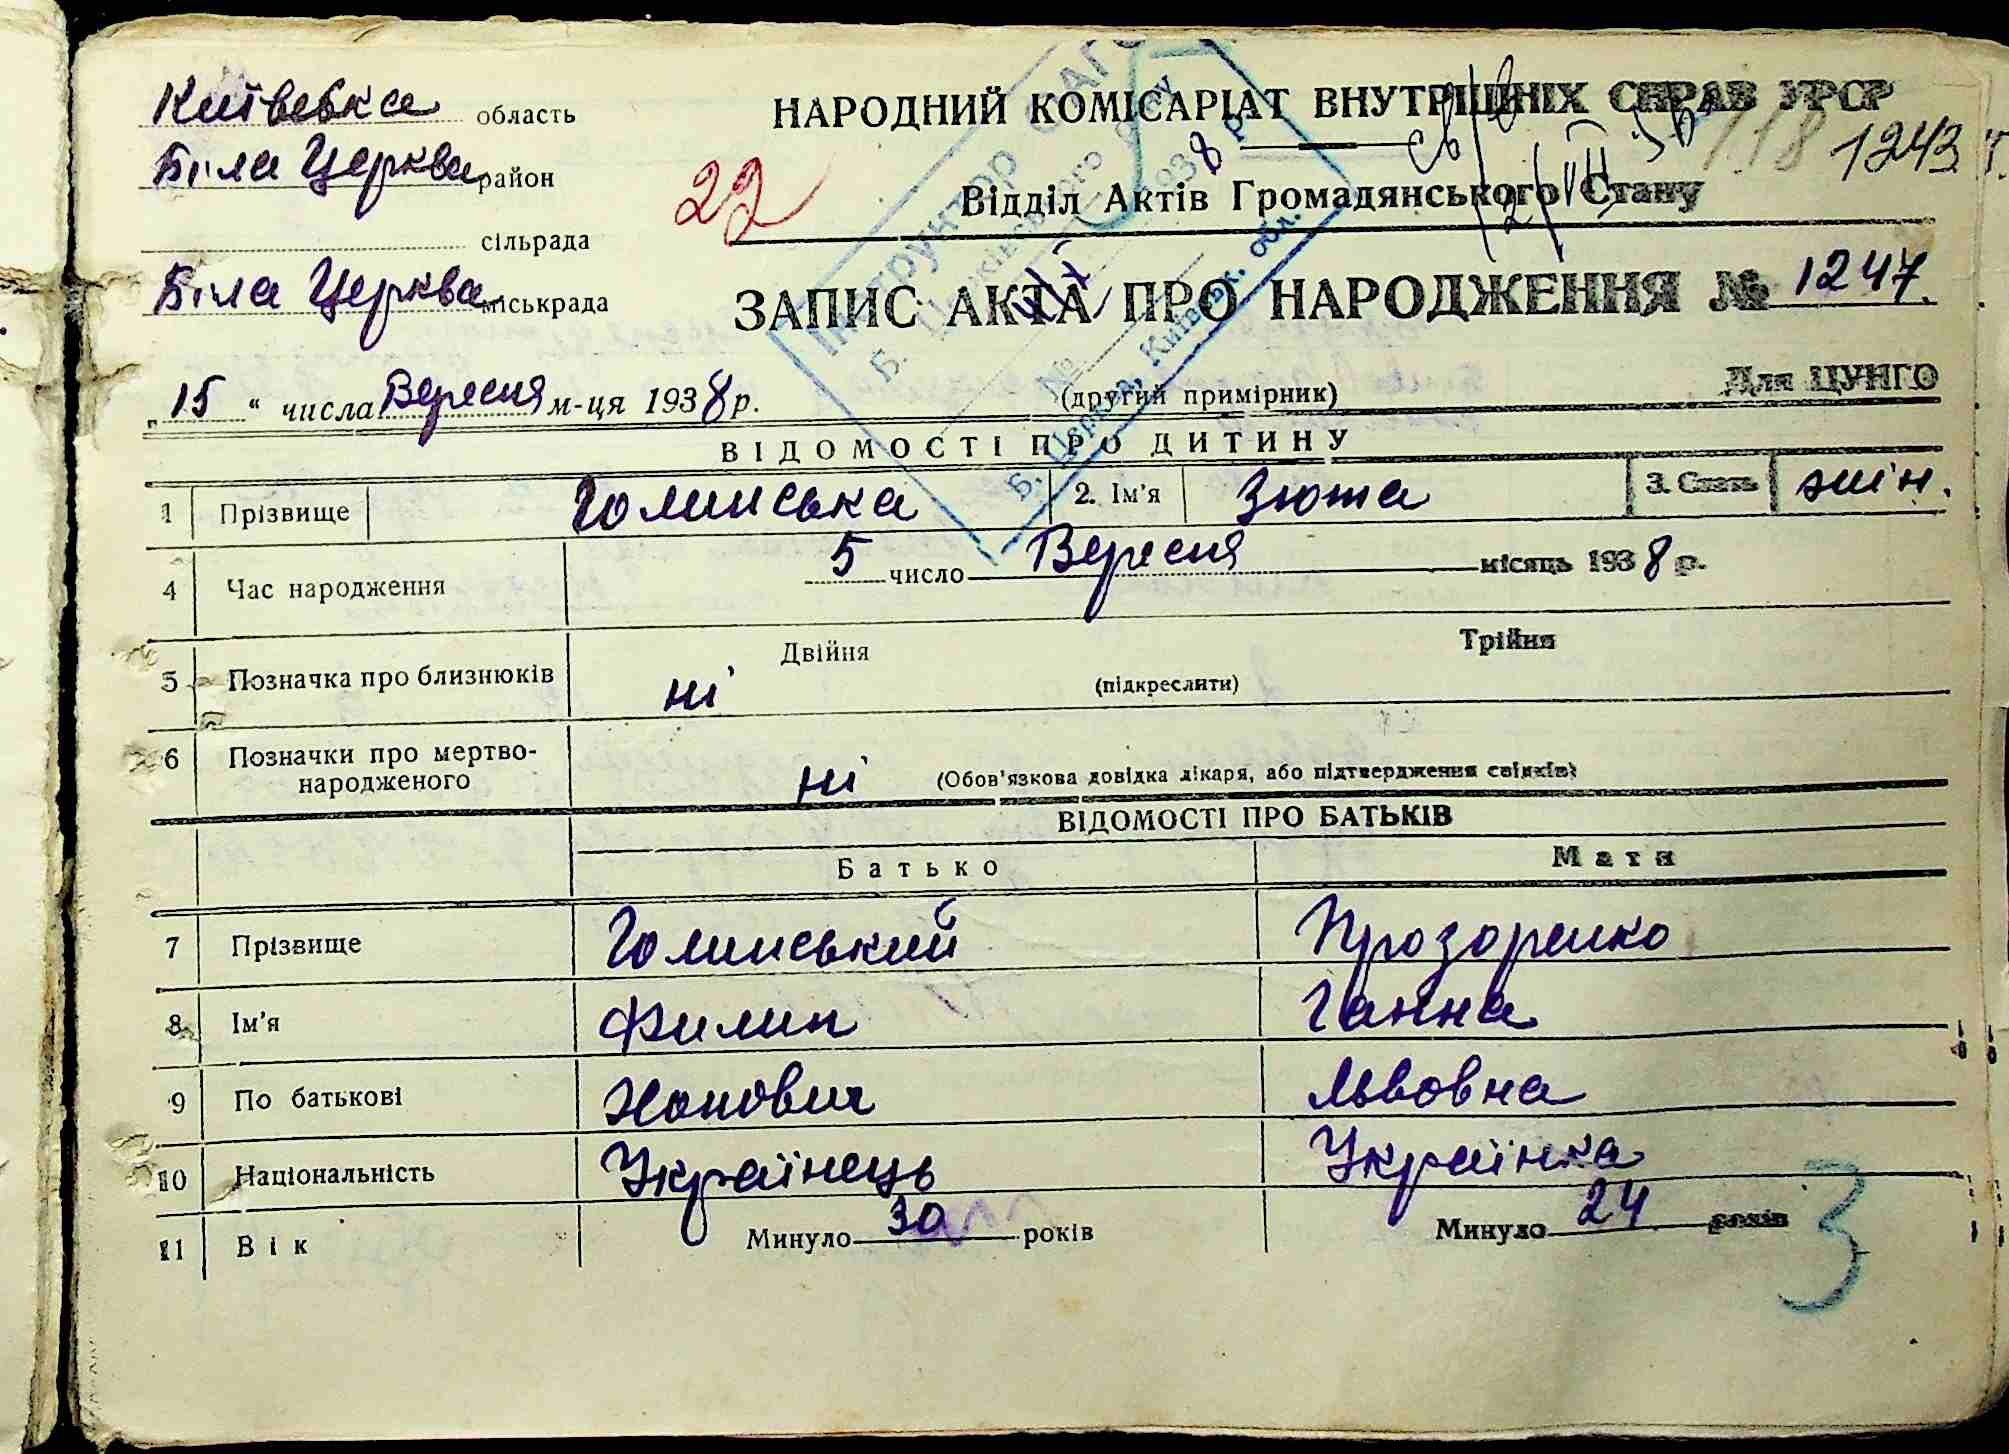 Київська область
Біла Церква район
сільрада
Біла Церква міськрада
НАРОДНИЙ КОМІСАРІАТ ВНУТРІШНІХ СПРАВ УРСР
118 1243
22
Відділ Актів Громадянського Стану
ЗАПИС АКТА ПРО НАРОДЖЕННЯ № 1247.
„ 15 “ числа Вересня м-ця 1938 р.
(другий примірник)
Для ЦУНГО
Б. Церква, Київськ. обл.
ВІДОМОСТІ ПРО ДИТИНУ
1 Прізвище Голинська 2. Ім'я Зюта 3. Стать жін.
4 Час народження 5 число Вересня місяць 1938 р.
5 Позначка про близнюків ні Двійня (підкреслити) Трійня
6 Позначки про мертво-
народженого ні (Обов'язкова довідка лікаря, або підтвердження свідків)
ВІДОМОСТІ ПРО БАТЬКІВ
Батько Мати
7 Прізвище Голинський Прозоренко
8 Ім'я Филип Ганна
9 По батькові Львовна
10 Національність Українець Українка
11 Вік Минуло 30 років Минуло 24 років
3